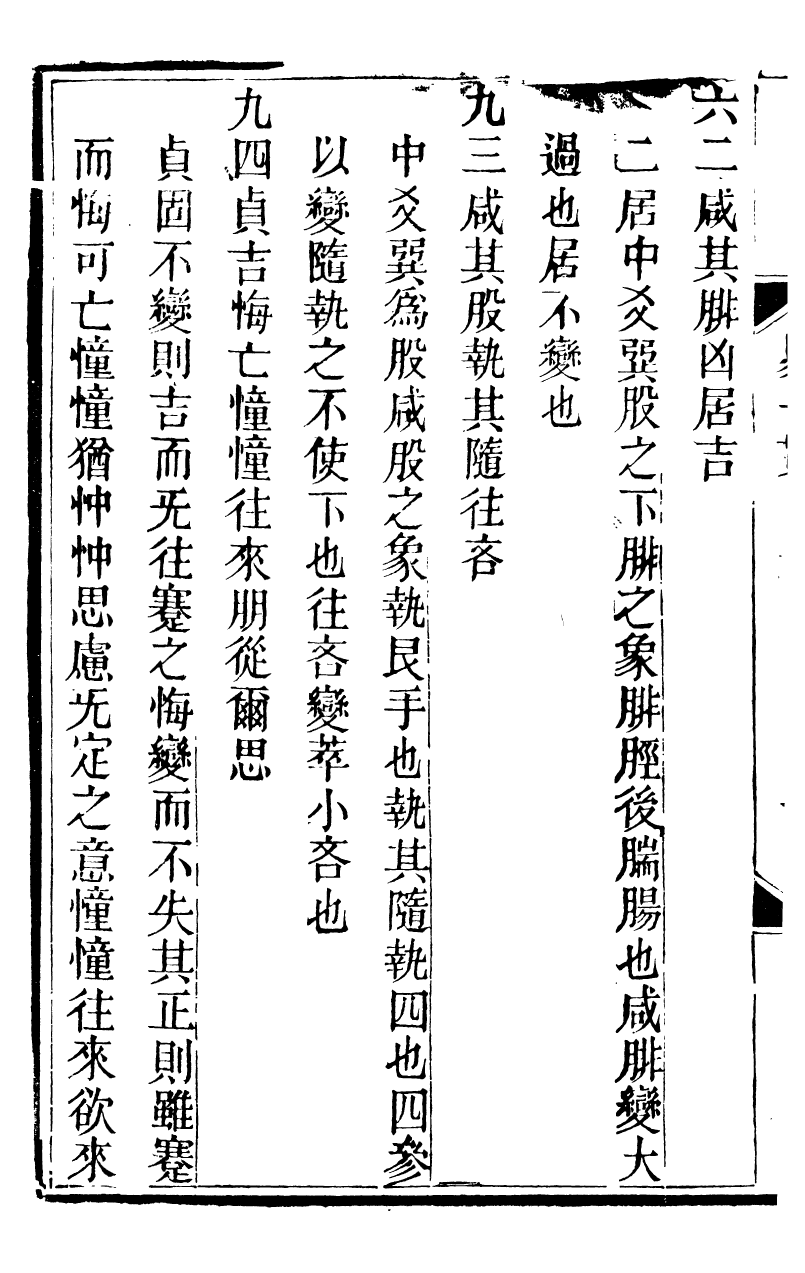 六二咸其腓凶居吉
二居中爻巽股之下腓之象腓脛後腨腸也咸腓變大
過也居不變也
九三咸其股執其隨往吝
中爻巽爲股咸股之象執艮手也執其隨執四也四參
以變隨執之不使下也往吝變萃小吝也
九四貞吉悔亡憧憧往來朋從爾思
貞固不變則吉而旡往蹇之悔變而不失其正則雖蹇
而悔可亡憧憧猶忡忡思慮旡定之意憧憧往來欲來